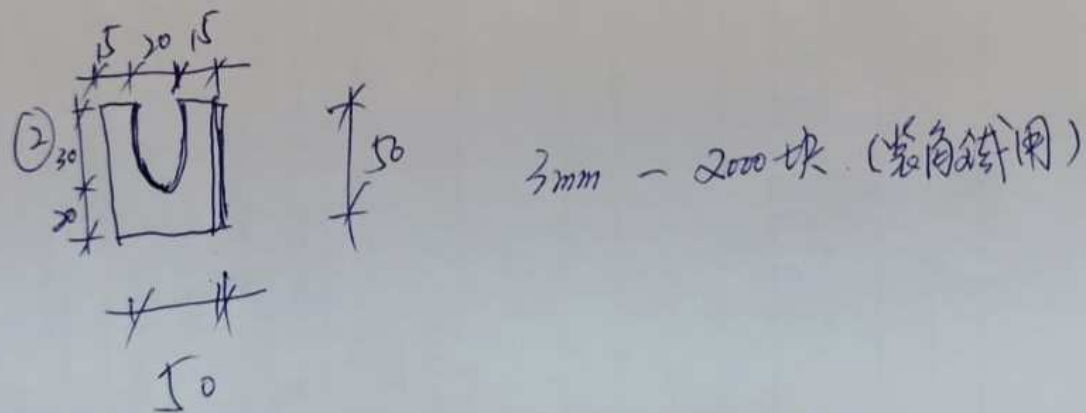 15 20 15
②
30
20
50
3mm - 2000块 (装角鐵闲)
50